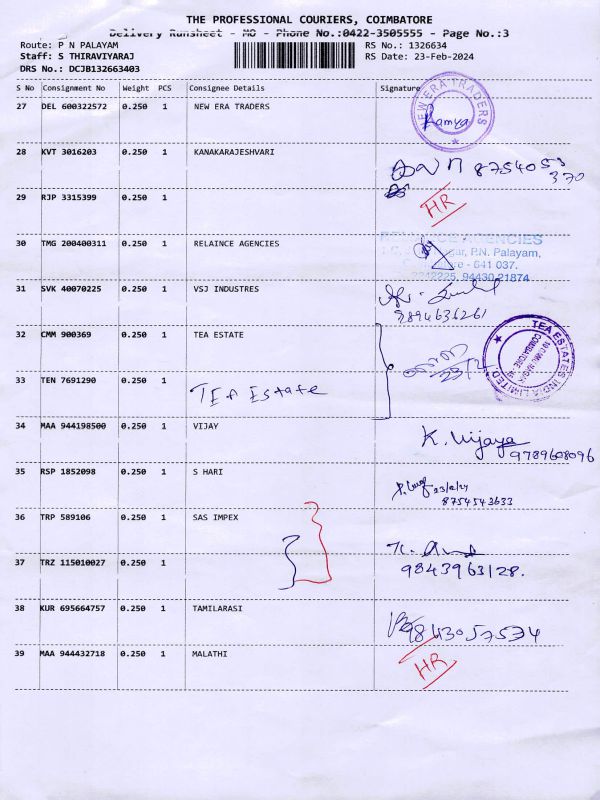 THE PROFESSIONAL COURIERS, COIMBATORE
Delivery Runsheet - MO - Phone No.:0422-3505555 - Page No.:3
Route: P N PALAYAM
RS No.: 1326634
Staff: S THIRAVIYARAJ
RS Date: 23-Feb-2024
DRS No.: DCJB132663403
S No Consignment No Weight PCS Consignee Details Signature
27 DEL 600322572 0.250 1 NEW ERA TRADERS
NEW ERA TRADERS
Ramya
28 KVT 3016203 0.250 1 KANAKARAJESHVARI
8754053
370
29 RJP 3315399 0.250 1
HR
30 TMG 200400311 0.250 1 RELAINCE AGENCIES
AGENCIES
P.N. Palayam,
- 641 037.
2242225, 94430 21874
31 SVK 40070225 0.250 1 VSJ INDUSTRES
9894636261
32 CMM 900369 0.250 1 TEA ESTATE
TEA ESTATES INDIA LIMITED
23/2
33 TEN 7691290 0.250 1 TEA Estate
34 MAA 944198500 0.250 1 VIJAY
K. Vijaya
9789608096
35 RSP 1852098 0.250 1 S HARI
23/2/24
8754543633
36 TRP 589106 0.250 1 SAS IMPEX
37 TRZ 115010027 0.250 1
9843963128.
38 KUR 695664757 0.250 1 TAMILARASI
9843057574
39 MAA 944432718 0.250 1 MALATHI
HR